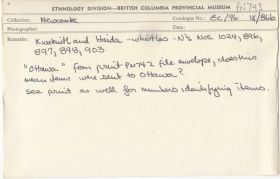 ETHNOLOGY DIVISION—BRITISH COLUMBIA PROVINCIAL MUSEUM PN743
Collection: Newcombe Catalogue No.: EC/96 IX/B66
Photographer: Date:
Remarks: Kwakiutl and Haida - whistles - N's Nos. 1024, 896,
897, 898, 903
"Ottawa" from print PN742 file envelope, does this
mean items were sent to Ottawa?
See print as well for numbers identifying items.